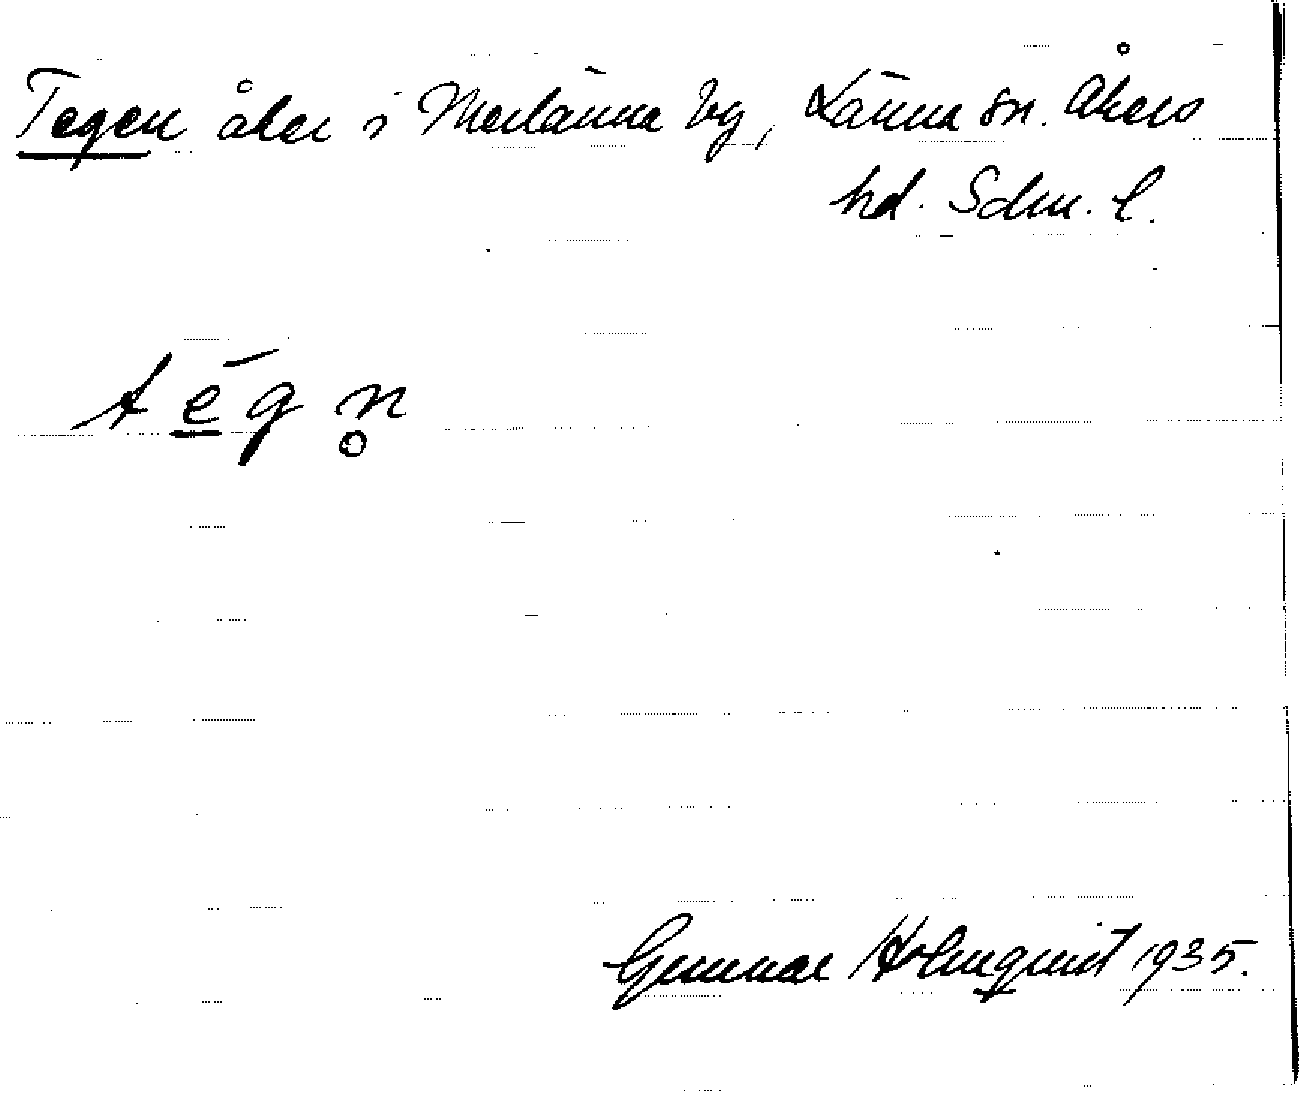 Tegen åker i Merlänna by, Länna sn. Åkers
hd. Sdm. l.
t ḗ̱ g n̥
Gunnar Holmquist 1935.